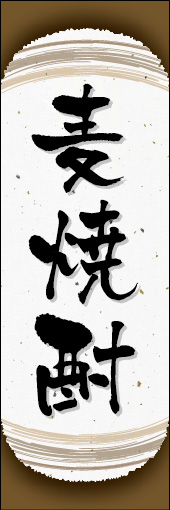 麦焼酎